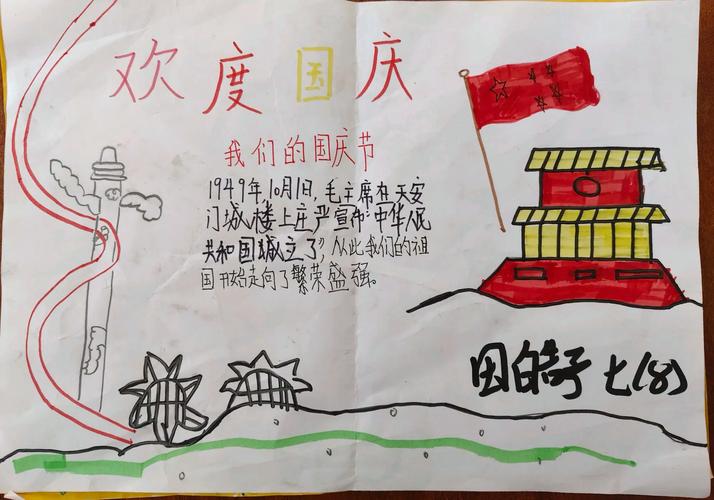 欢度国庆
我们的国庆节
1949年,10月1日,毛主席在天安
门城楼上庄严宣布"中华人民
共和国城立了",从此我们的祖
国开始走向了繁荣盛强。
七(8)